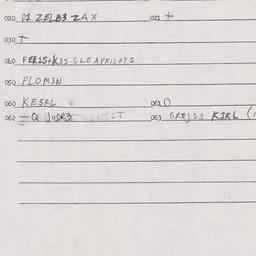 020 DI ZELB3 ZAX 021 +
030 +
040 FER15+K35 GLEAPRICOTS
050 FLOM3N
060 KESRL 061 0
062 + Q JODR3 063 GREJS3 KIRL (